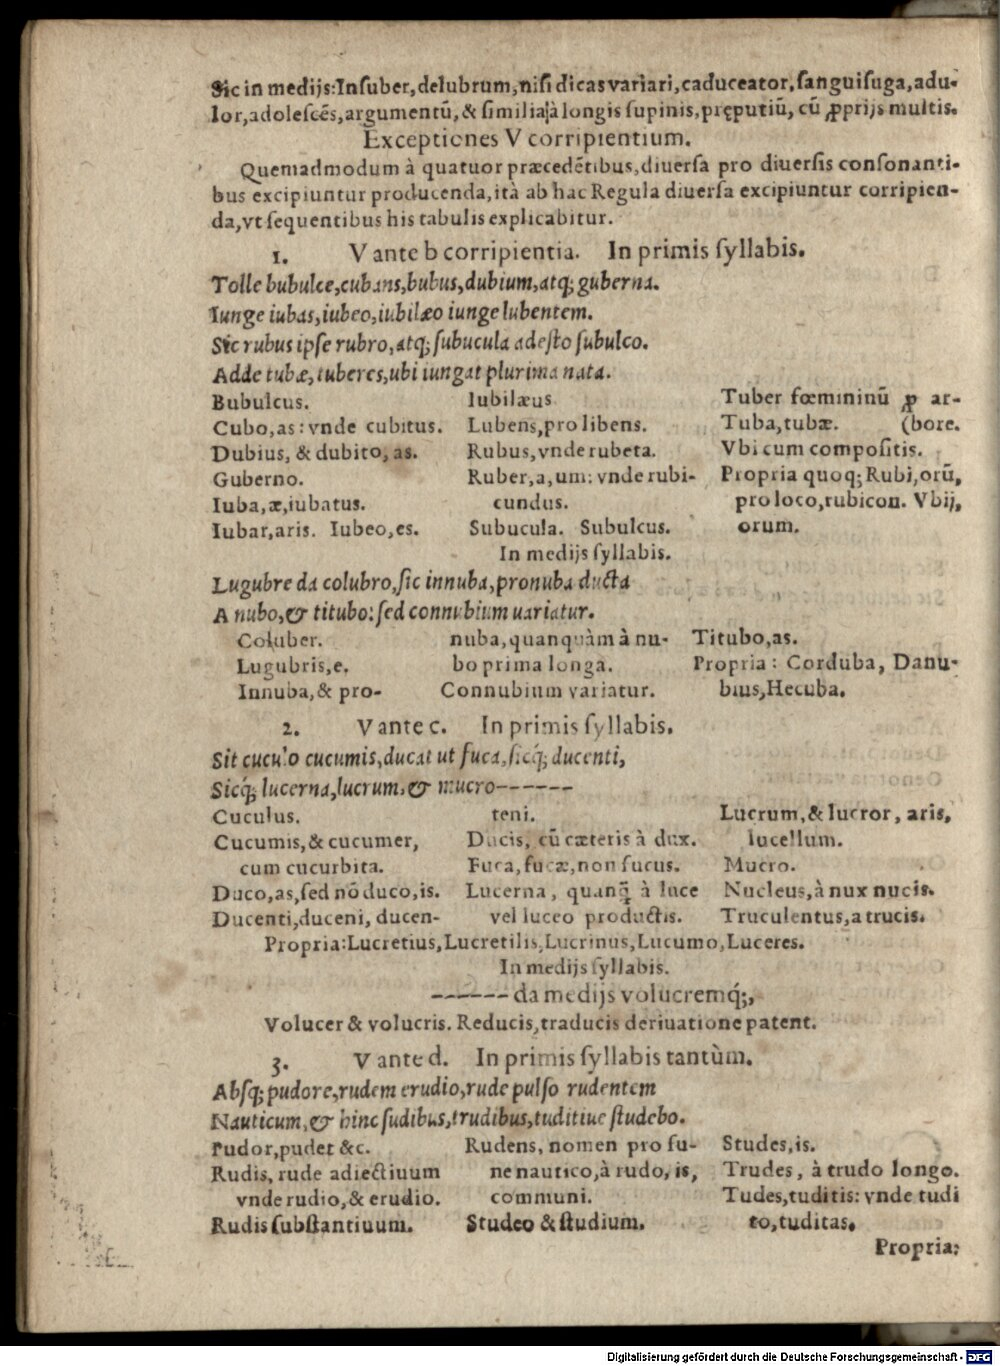 Sic in medijs: Inſuber, delubrum, niſi dicas variari, caduceator, ſanguiſuga, adu-
lor, adoleſcẽs, argumentũ, & ſimilia à longis ſupinis, pręputiũ, cũ ꝓprijs multis.
Exceptiones V corripientium.
Quemadmodum à quatuor præcedẽtibus, diuerſa pro diuerſis conſonanti-
bus excipiuntur producenda, ità ab hac Regula diuerſa excipiuntur corripien-
da, vt ſequentibus his tabulis explicabitur.
1. V ante b corripientia. In primis ſyllabis.
Tolle bubulce, cubans, bubus, dubium, atq; guberna.
Iunge iubas, iubeo, iubilæo iunge lubentem.
Sic rubus ipſe rubro, atq; ſubucula adeſto ſubulco.
Adde tubæ, tuberes, ubi iungat plurima nata.
Bubulcus.
Cubo, as: vnde cubitus.
Dubius, & dubito, as.
Guberno.
Iuba, æ, iubatus.
Iubar, aris. Iubeo, es.
Iubilæus
Lubens, pro libens.
Rubus, vnde rubeta.
Ruber, a, um: vnde rubi-
cundus.
Subucula. Subulcus.
Tuber fœmininũ ꝓ ar-
Tuba, tubæ. (bore.
Vbi cum compoſitis.
Propria quoq; Rubi, orũ,
pro loco, rubicon. Vbij,
orum.
In medijs ſyllabis.
Lugubre da colubro, ſic innuba, pronuba ducta
A nubo, & titubo: ſed connubium uariatur.
Coluber.
Lugubris, e.
Innuba, & pro-
nuba, quanquàm à nu-
bo prima longa.
Connubium variatur.
Titubo, as.
Propria: Corduba, Danu-
bius, Hecuba.
2. V ante c. In primis ſyllabis.
Sit cuculo cucumis, ducat ut fuca, ſicq́; ducenti,
Sicq́; lucerna, lucrum, & mucro------
Cuculus.
Cucumis, & cucumer,
cum cucurbita.
Duco, as, ſed nõ duco, is.
Ducenti, duceni, ducen-
teni.
Ducis, cũ cæteris à dux.
Fuca, fucæ, non fucus.
Lucerna, quanq̃ à luce
vel luceo productis.
Lucrum, & lucror, aris,
lucellum.
Mucro.
Nucleus, à nux nucis.
Truculentus, a trucis.
Propria: Lucretius, Lucretilis, Lucrinus, Lucumo, Luceres.
In medijs ſyllabis.
------da medijs volucremq́;,
Volucer & volucris. Reducis, traducis deriuatione patent.
3. V ante d. In primis ſyllabis tantùm.
Abſq; pudore, rudem erudio, rude pulſo rudentem
Nauticum, & hinc ſudibus, trudibus, tuditiue ſtudebo.
Pudor, pudet &c.
Rudis, rude adiectiuum
vnde rudio, & erudio.
Rudis ſubſtantiuum.
Rudens, nomen pro fu-
ne nautico, à rudo, is,
communi.
Studeo & ſtudium.
Studes, is.
Trudes, à trudo longo.
Tudes, tuditis: vnde tudi
to, tuditas.
Propria:
Digitalisierung gefördert durch die Deutsche Forschungsgemeinschaft - DFG